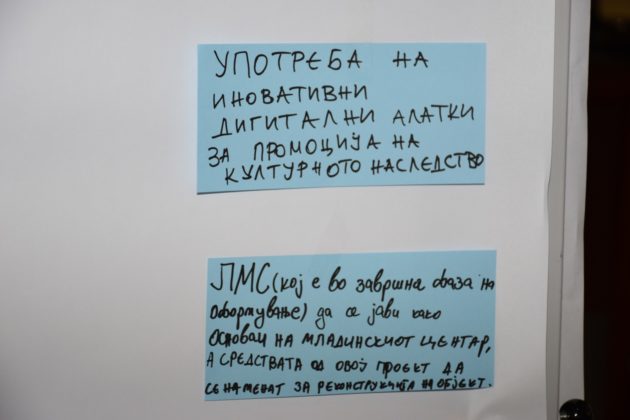 УПОТРЕБА НА
ИНОВАТИВНИ
ДИГИТАЛНИ АЛАТКИ
ЗА ПРОМОЦИЈА НА
КУЛТУРНОТО НАСЛЕДСТВО
ЛМС (кој е во завршна фаза на
оформување) да се јави како
ОСНОВАЧ НА МЛАДИНСКИОТ ЦЕНТАР,
А СРЕДСТВАТА ОД ОВОЈ ПРОЕКТ ДА
СЕ НАМЕНАТ ЗА РЕКОНСТРУКЦИЈА НА ОБЈЕКТ.